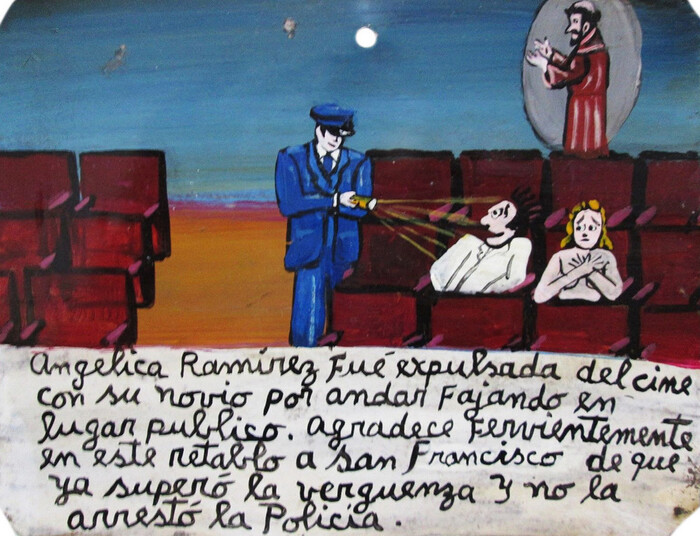 Angelica Ramirez Fué expulsada del cine
con su novio por andar Fajando en
lugar publico. agradece Fervientemente
en este retablo a San Francisco de que
ya superó la verguenza y no la
arrestó la Policia.